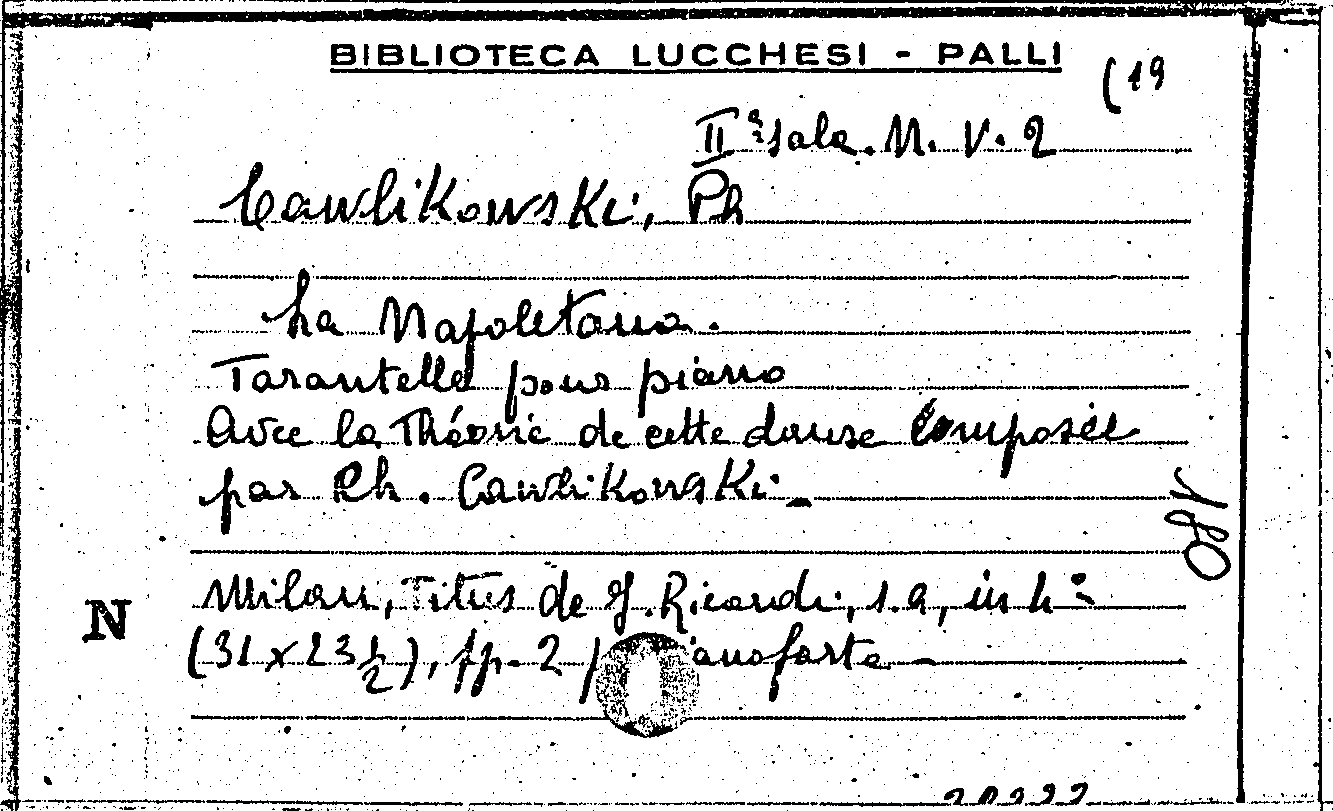 BIBLIOTECA LUCCHESI - PALLI
(19
IIª sala. M. V. 2
Cawlikowski, Ph
La Napoletana.
Tarantelle pour piano
Avec la théorie de cette danse composée
par Ph. Cawlikowski. –
180
Milan, Titus de G. Ricordi, s.a, in 4º
N
(31 x 23 1/2), pp. 2 pianoforte –